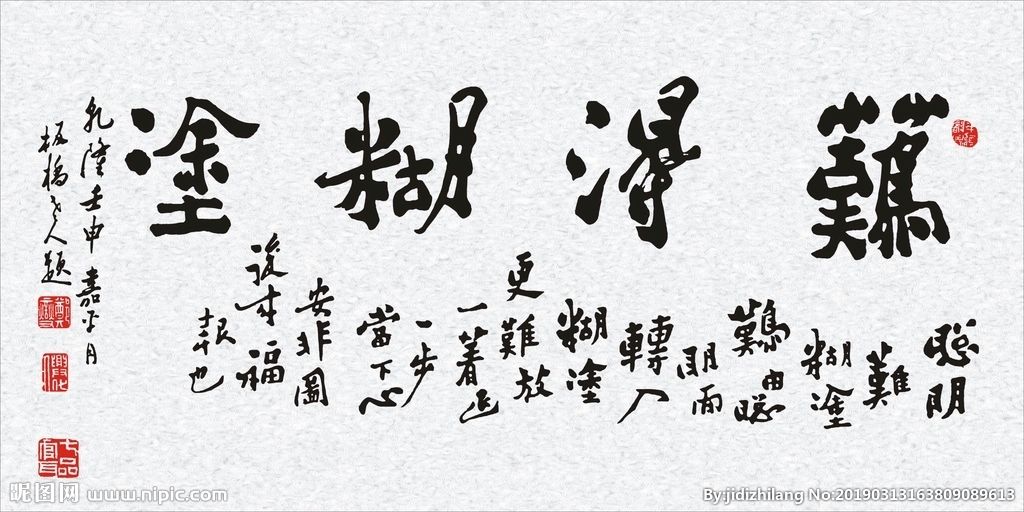 難得糊塗
聰明
難
糊塗
難由聰
明而
轉入
糊塗
更難放
一著退
一步
當下心
安非圖
後来福
报也
乾隆壬申嘉平月
板橋老人題
七品官耳
昵图网 www.nipic.com
By:jidizhilang No:20190313163809089613